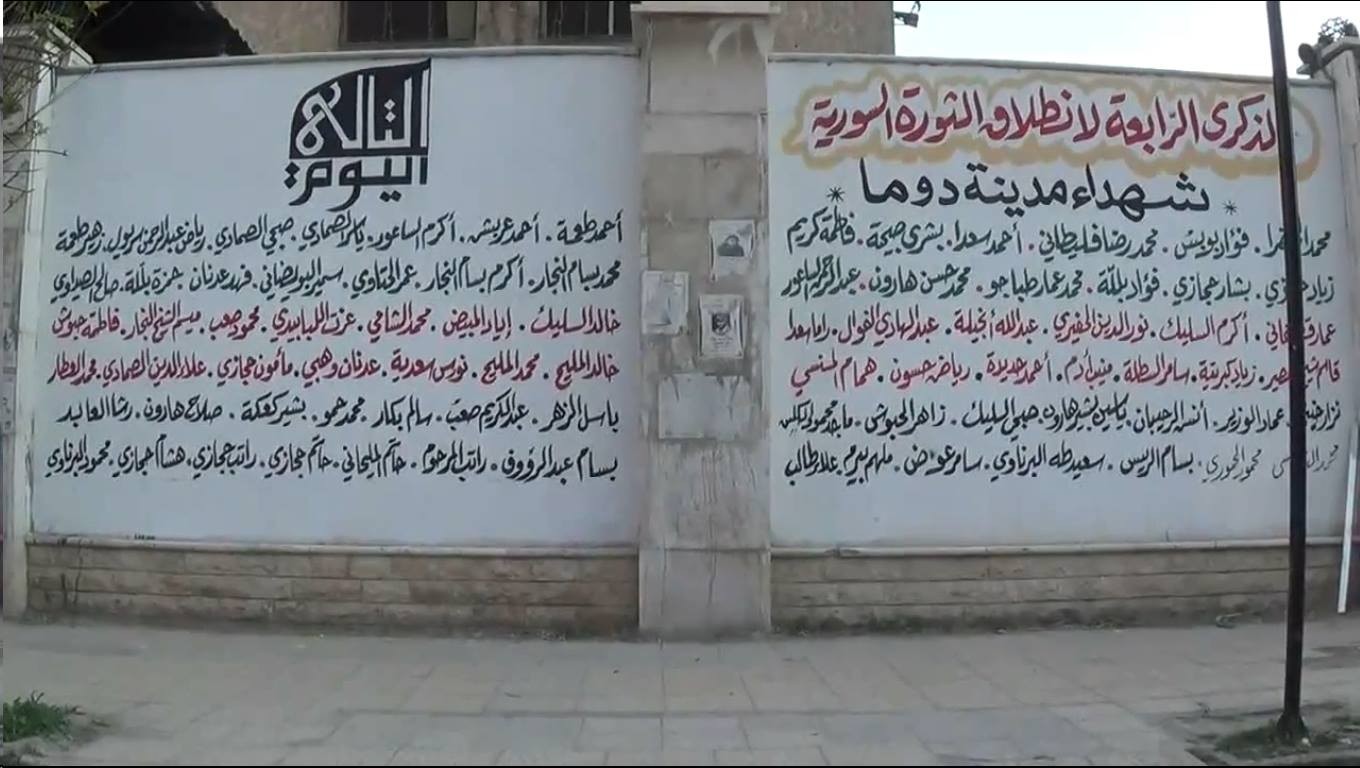 الذكرى الرّابعة لانطلاق الثورة السورية
شهداء مدينة دوما
فؤاد بويش. محمد رضا فليطاني. أحمد سعدا. بشرى صبحة. فاطمة كريم
زياد بشار حجازي. فؤاد بللّة. محمد عمار طباجو. محمد حسن هارون. عبد الرحمن الساعور
أكرم السليك. نور الدين الحفيري. عبدالله أنخيلة. عبد الهادي الفوال. راما سعدا
زياد كبريتية. سامر السطلة. منيب أدم. أحمد حديدة. رياض حسون. همام المنسي
عماد الوزير. أنس الرحيبان. ياسين بشير هارون. صبحي السليك. زاهر الحبوش. ماجد محمود
محمود الحوري. بسام الريس. سعيد طه البرناوي. سامر عوض. ملهم بيرم. علا طالب
اليوم التالي
أحمد طعمة. أحمد عريش. أكرم الساعور. ياسر الصمادي. صبحي الصمادي. رياض عبد الرحمن سريول. زهر طعمة
محمد بسام النجار. أكرم بسام النجار. عمر الحتاوي. سمير البويضاني. فهد عدنان حمزة بللة. صالح الصيداوي
خالد السليك. إياد المبيض. محمد الشامي. عزت اللبابيدي. محمود صعب. ميسم الشيخ النجار. فاطمة حبوش
خالد المليح. محمد المليح. نورس سعدية. عدنان وهبي. مأمون حجازي. علاء الدين الصمادي. محمد العطار
باسل الزهر. عبد الكريم صعب. سالم بكار. محمد حمو. بشير كعكة. صلاح هارون. رشا العابد
بسام عبد الرؤوف. راتب المرحوم. حاتم المليحاني. حاتم حجازي. راتب حجازي. هشام حجازي. محمود البرناوي